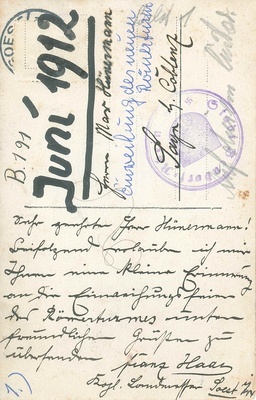 Juni 1912
B.191
Herrn Max Hünermann
Sayn b. Coblenz
Einweihung des neuen
Römerturm
Sehr geehrter Herr Hünermann!
Beifolgend erlaube ich mir
Ihnen eine kleine Erinnerung
an die Einweihungsfeier
des Römerturmes unter
freundlichen Grüßen zu
übersenden
Franz Haas
Kgl. Landmesser
1.)